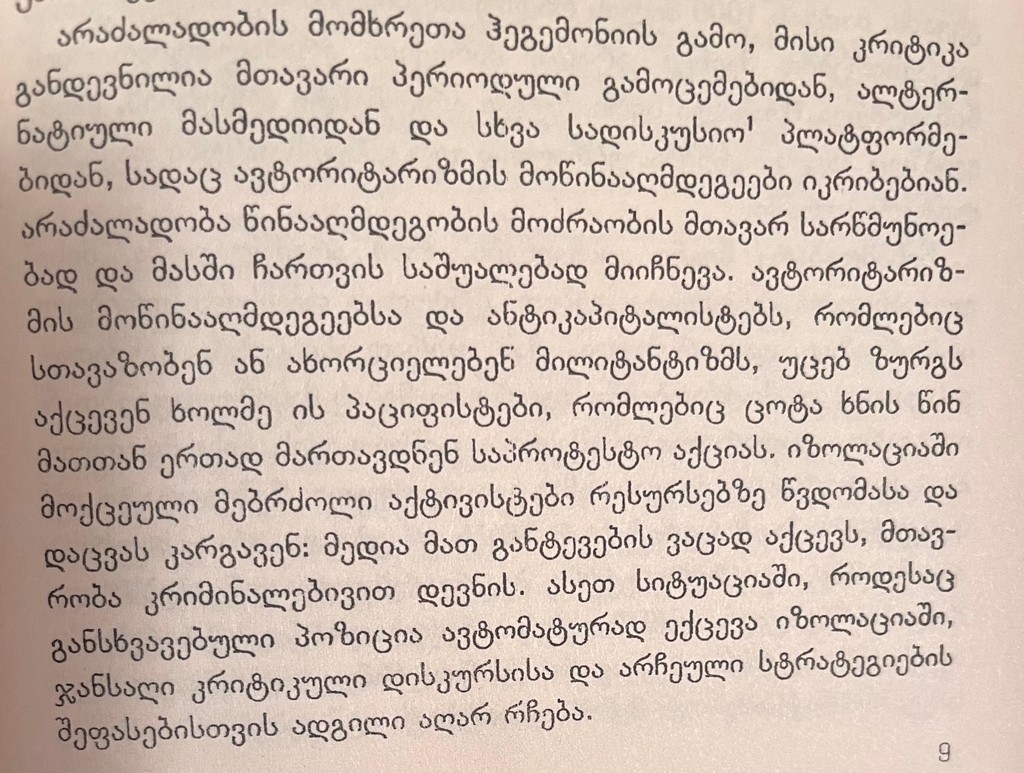 არაძალადობის მომხრეთა ჰეგემონიის გამო, მისი კრიტიკა
განდევნილია მთავარი პერიოდული გამოცემებიდან, ალტერ-
ნატიული მასმედიიდან და სხვა სადისკუსიო¹ პლატფორმე-
ბიდან, სადაც ავტორიტარიზმის მოწინააღმდეგეები იკრიბებიან.
არაძალადობა წინააღმდეგობის მოძრაობის მთავარ სარწმუნოე-
ბად და მასში ჩართვის საშუალებად მიიჩნევა. ავტორიტარიზ-
მის მოწინააღმდეგეებსა და ანტიკაპიტალისტებს, რომლებიც
სთავაზობენ ან ახორციელებენ მილიტანტიზმს, უცებ ზურგს
აქცევენ ხოლმე ის პაციფისტები, რომლებიც ცოტა ხნის წინ
მათთან ერთად მართავდნენ საპროტესტო აქციას. იზოლაციაში
მოქცეული მებრძოლი აქტივისტები რესურსებზე წვდომასა და
დაცვას კარგავენ: მედია მათ განტევების ვაცად აქცევს, მთავ-
რობა კრიმინალებივით დევნის. ასეთ სიტუაციაში, როდესაც
განსხვავებული პოზიცია ავტომატურად ექცევა იზოლაციაში,
ჯანსაღი კრიტიკული დისკურსისა და არჩეული სტრატეგიების
შეფასებისთვის ადგილი აღარ რჩება.
9